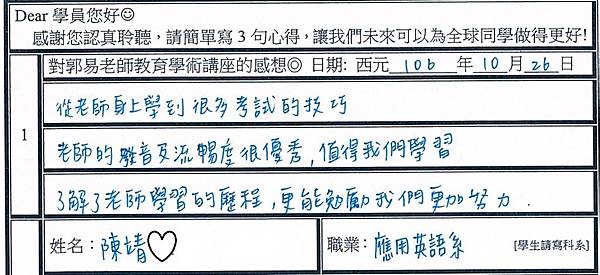 Dear 學員您好☺
感謝您認真聆聽，請簡單寫 3 句心得，讓我們未來可以為全球同學做得更好!
對郭易老師教育學術講座的感想◎ 日期: 西元 106 年 10 月 26 日
1
從老師身上學到很多考試的技巧
老師的發音及流暢度很優秀，值得我們學習
了解了老師學習的歷程，更能勉勵我們更加努力.
姓名：陳靖♡ 職業：應用英語系 [學生請寫科系]